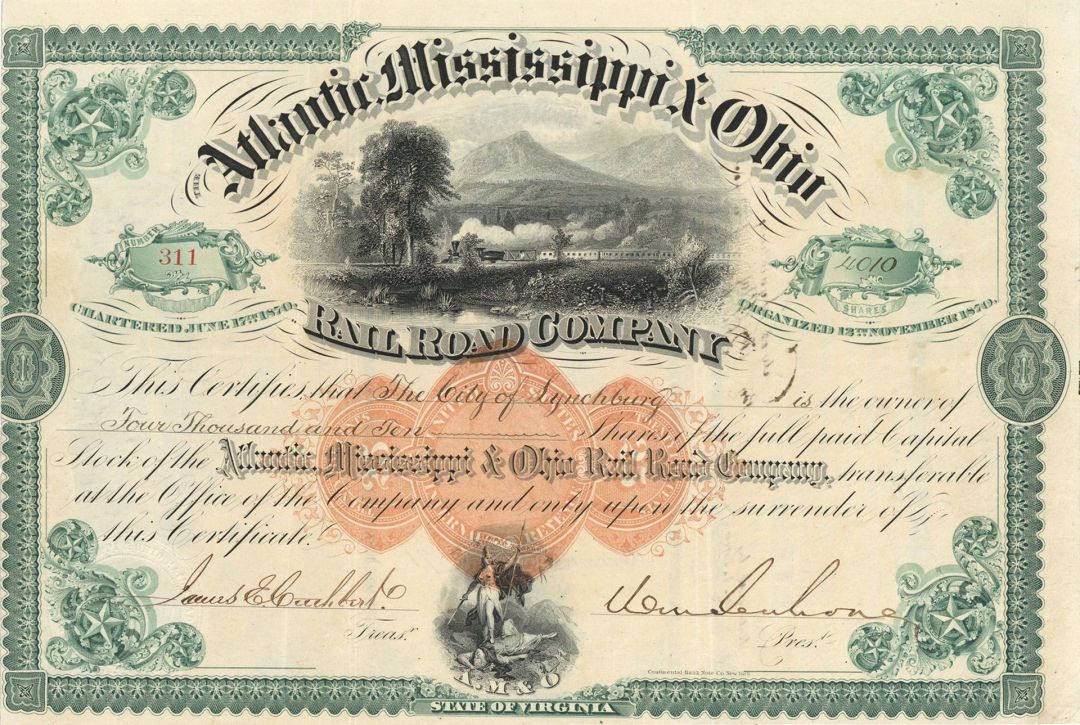 THE
Atlantic, Mississippi & Ohio
NUMBER
311
4010
SHARES
CHARTERED JUNE 17TH 1870.
ORGANIZED 12TH NOVEMBER 1870.
RAIL ROAD COMPANY
This Certifies that The City of Lynchburg is the owner of
Four Thousand and Ten Shares of the full paid Capital
Stock of the Atlantic, Mississippi & Ohio Rail Road Company, transferable
at the Office of the Company and only upon the surrender of
this Certificate.
James E Cuthbert
Treasr.
Wm Mahone
Prest.
A. M & O
Continental Bank Note Co New York
STATE OF VIRGINIA